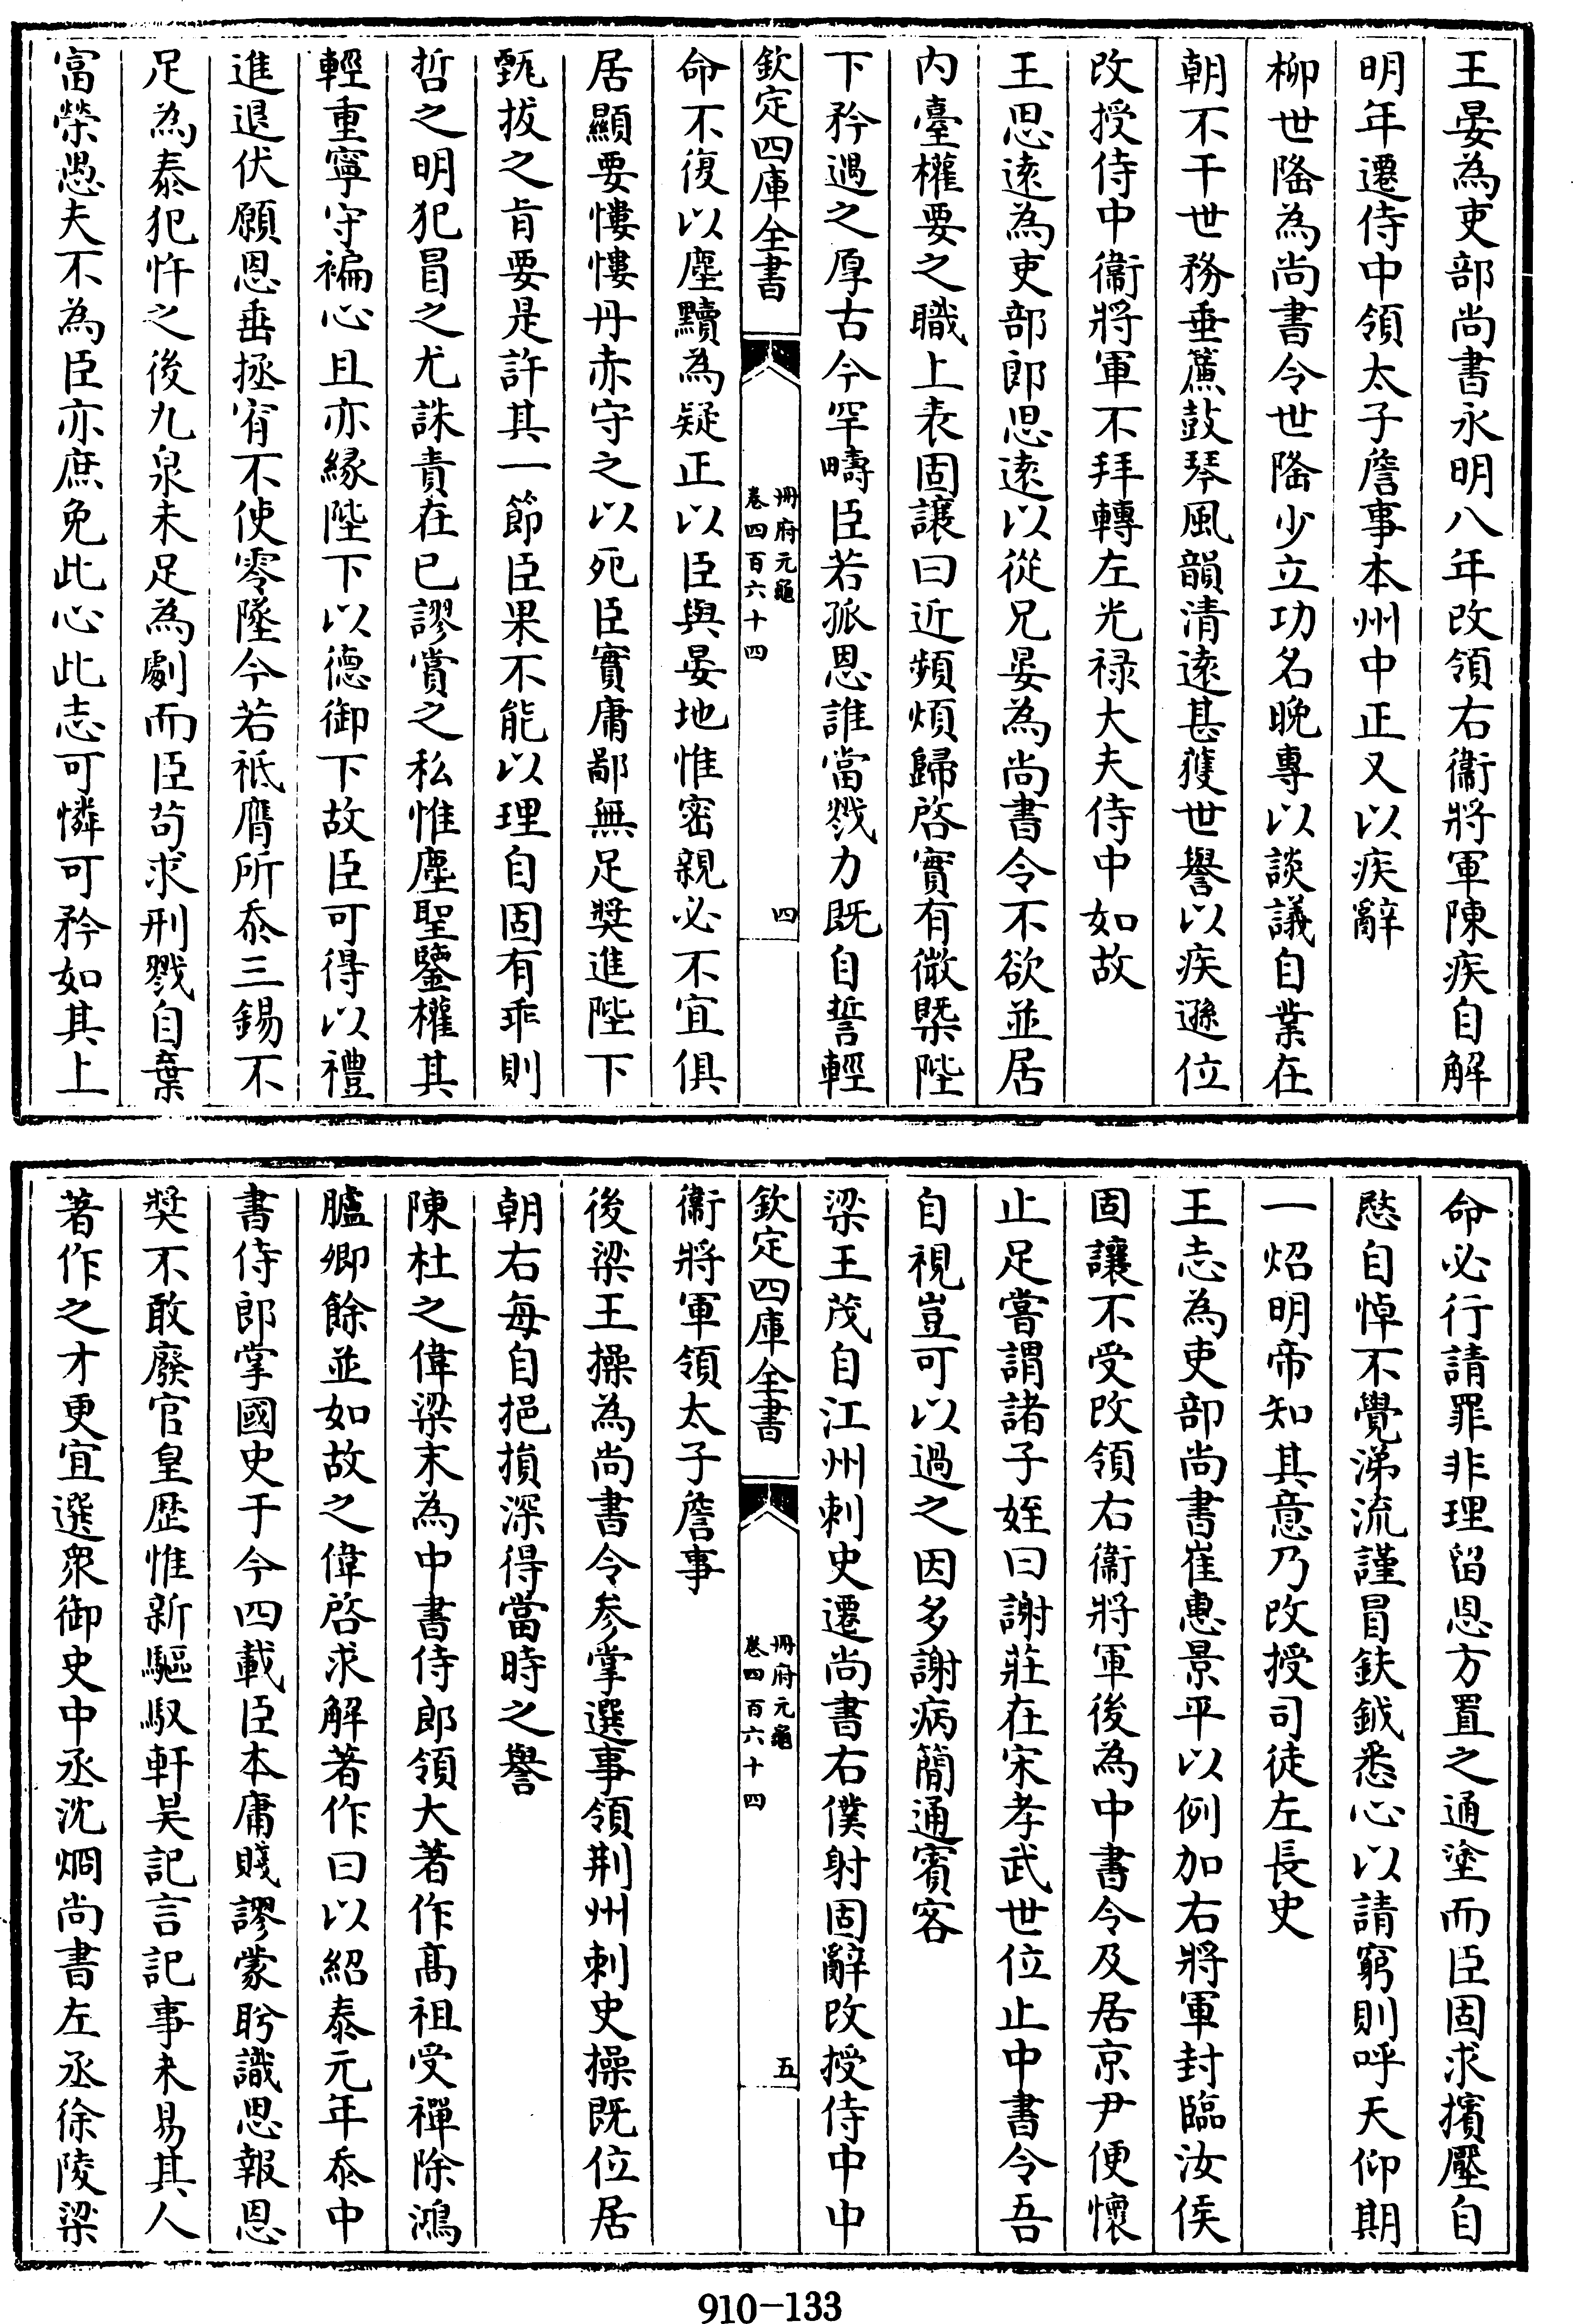 王晏為吏部尚書永明八年改領右衞將軍陳疾自解
明年遷侍中領太子詹事本州中正又以疾辭
柳世隆為尚書令世隆少立功名晚專以談議自業在
朝不干世務垂簾鼓琴風韻清逺甚獲世譽以疾遜位
改授侍中衞將軍不拜轉左光禄大夫侍中如故
王思逺為吏部郎思逺以從兄晏為尚書令不欲並居
内臺權要之職上表固讓曰近頻煩歸啓實有微槩陛
下矜遇之厚古今罕疇臣若孤恩誰當戮力既自誓輕
欽定四庫全書
冊府元龜
卷四百六十四
四
命不復以塵黷為疑正以臣與晏地惟密親必不宜俱
居顯要慺慺丹赤守之以死臣實庸鄙無足奬進陛下
甄拔之肯要是許其一節臣果不能以理自固有乖則
哲之明犯冒之尤誅責在已謬賞之私惟塵聖鑒權其
輕重寧守褊心且亦緣陛下以德御下故臣可得以禮
進退伏願恩垂拯宥不使零墜今若祗膺所忝三錫不
足為泰犯忤之後九泉未足為劇而臣苟求刑戮自棄
富榮愚夫不為臣亦庶免此心此志可憐可矜如其上
命必行請罪非理留恩方置之通塗而臣固求擯壓自
愍自悼不覺涕流謹冒鈇鉞悉心以請窮則呼天仰期
一炤明帝知其意乃改授司徒左長史
王志為吏部尚書崔惠景平以例加右將軍封臨汝侯
固讓不受改領右衞將軍後為中書令及居京尹便懷
止足嘗謂諸子姪曰謝莊在宋孝武世位止中書令吾
自視豈可以過之因多謝病簡通賓客
梁王茂自江州刺史遷尚書右僕射固辭改授侍中中
欽定四庫全書
冊府元龜
卷四百六十四
五
衞將軍領太子詹事
後梁王操為尚書令参掌選事領荆州刺史操既位居
朝右每自挹損深得當時之譽
陳杜之偉梁末為中書侍郎領大著作髙祖受禪除鴻
臚卿餘並如故之偉啓求解著作曰以紹泰元年忝中
書侍郎掌國史于今四載臣本庸賤謬蒙盼識思報恩
奬不敢廢官皇歴惟新驅馭軒昊記言記事未易其人
著作之才更宜選衆御史中丞沈烱尚書左丞徐陵梁
910-133